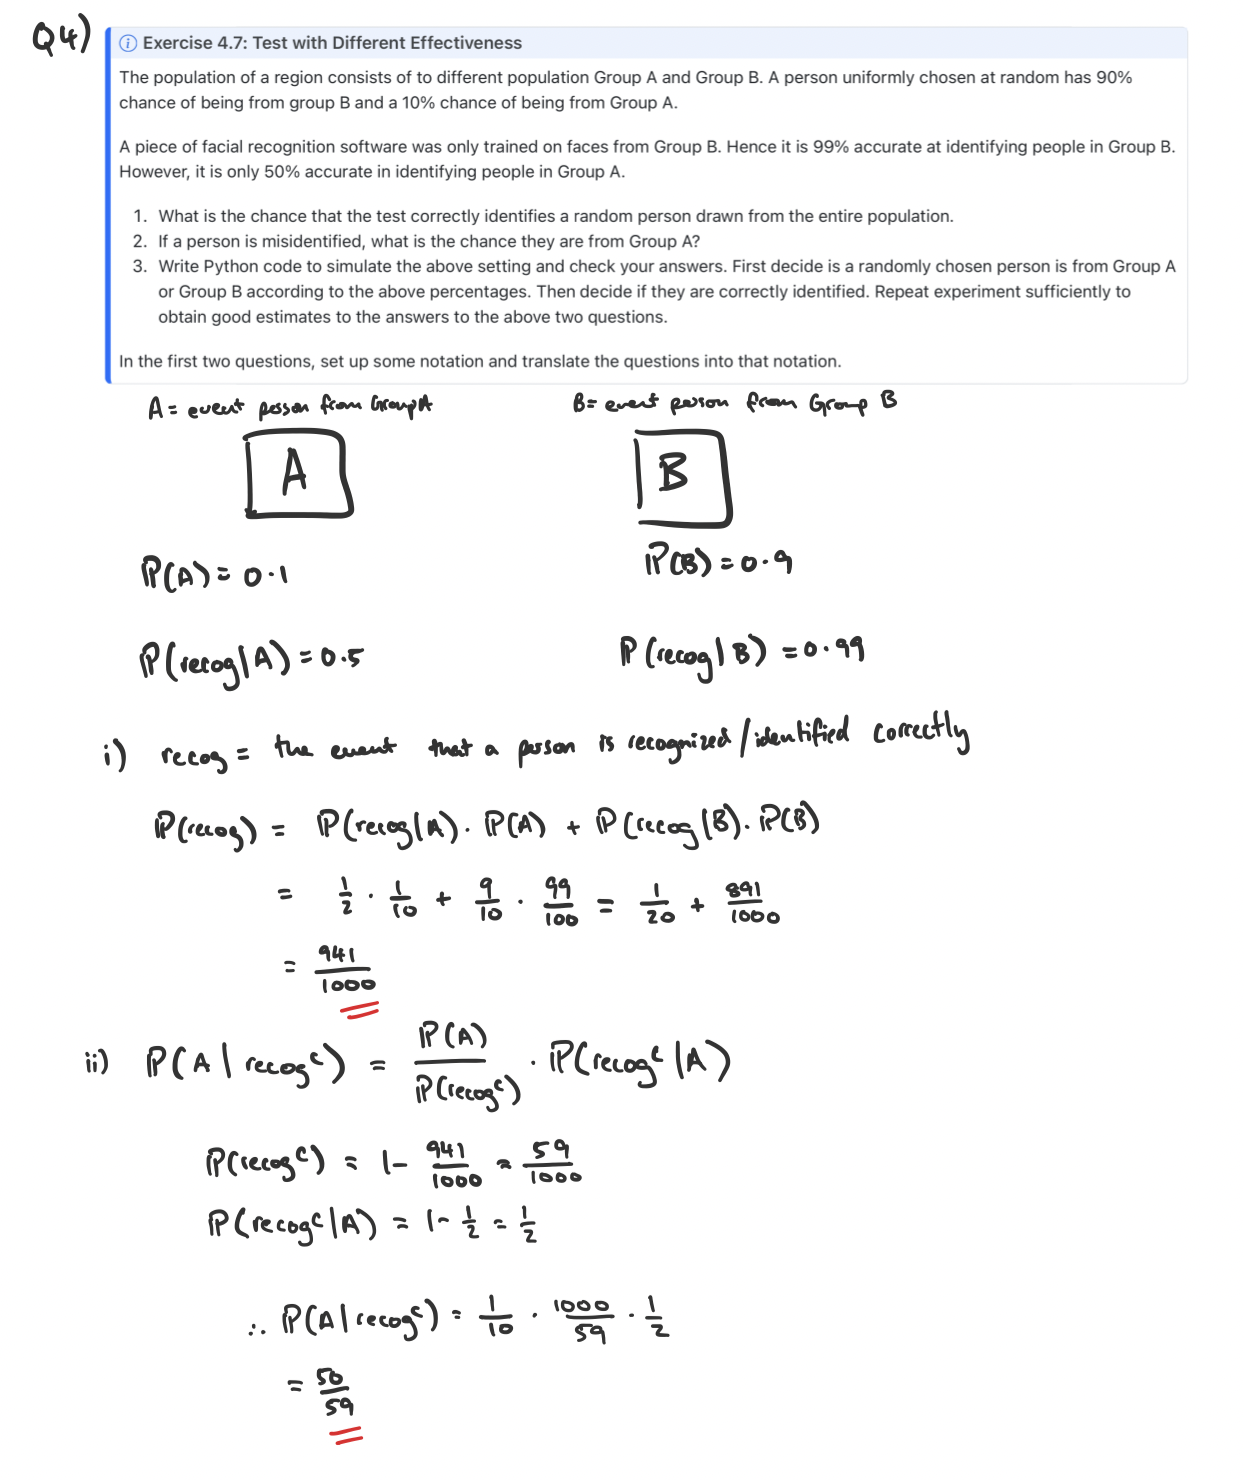 Q4)
Exercise 4.7: Test with Different Effectiveness
The population of a region consists of to different population Group A and Group B. A person uniformly chosen at random has 90%
chance of being from group B and a 10% chance of being from Group A.
A piece of facial recognition software was only trained on faces from Group B. Hence it is 99% accurate at identifying people in Group B.
However, it is only 50% accurate in identifying people in Group A.
1. What is the chance that the test correctly identifies a random person drawn from the entire population.
2. If a person is misidentified, what is the chance they are from Group A?
3. Write Python code to simulate the above setting and check your answers. First decide is a randomly chosen person is from Group A
or Group B according to the above percentages. Then decide if they are correctly identified. Repeat experiment sufficiently to
obtain good estimates to the answers to the above two questions.
In the first two questions, set up some notation and translate the questions into that notation.
A = event person from Group A
B = event person from Group B
A
B
ℙ(A) = 0.1
ℙ(B) = 0.9
ℙ(recog|A) = 0.5
ℙ(recog|B) = 0.99
i) recog = the event that a person is recognized/identified correctly
ℙ(recog) = ℙ(recog|A) · ℙ(A) + ℙ(recog|B) · ℙ(B)
= 1/2 · 1/10 + 9/10 · 99/100 = 1/20 + 891/1000
= 941/1000
ii) ℙ(A|recogᶜ) = ℙ(A)/ℙ(recogᶜ) · ℙ(recogᶜ|A)
ℙ(recogᶜ) = 1 - 941/1000 = 59/1000
ℙ(recogᶜ|A) = 1 - 1/2 = 1/2
∴ ℙ(A|recogᶜ) = 1/10 · 1000/59 · 1/2
= 50/59